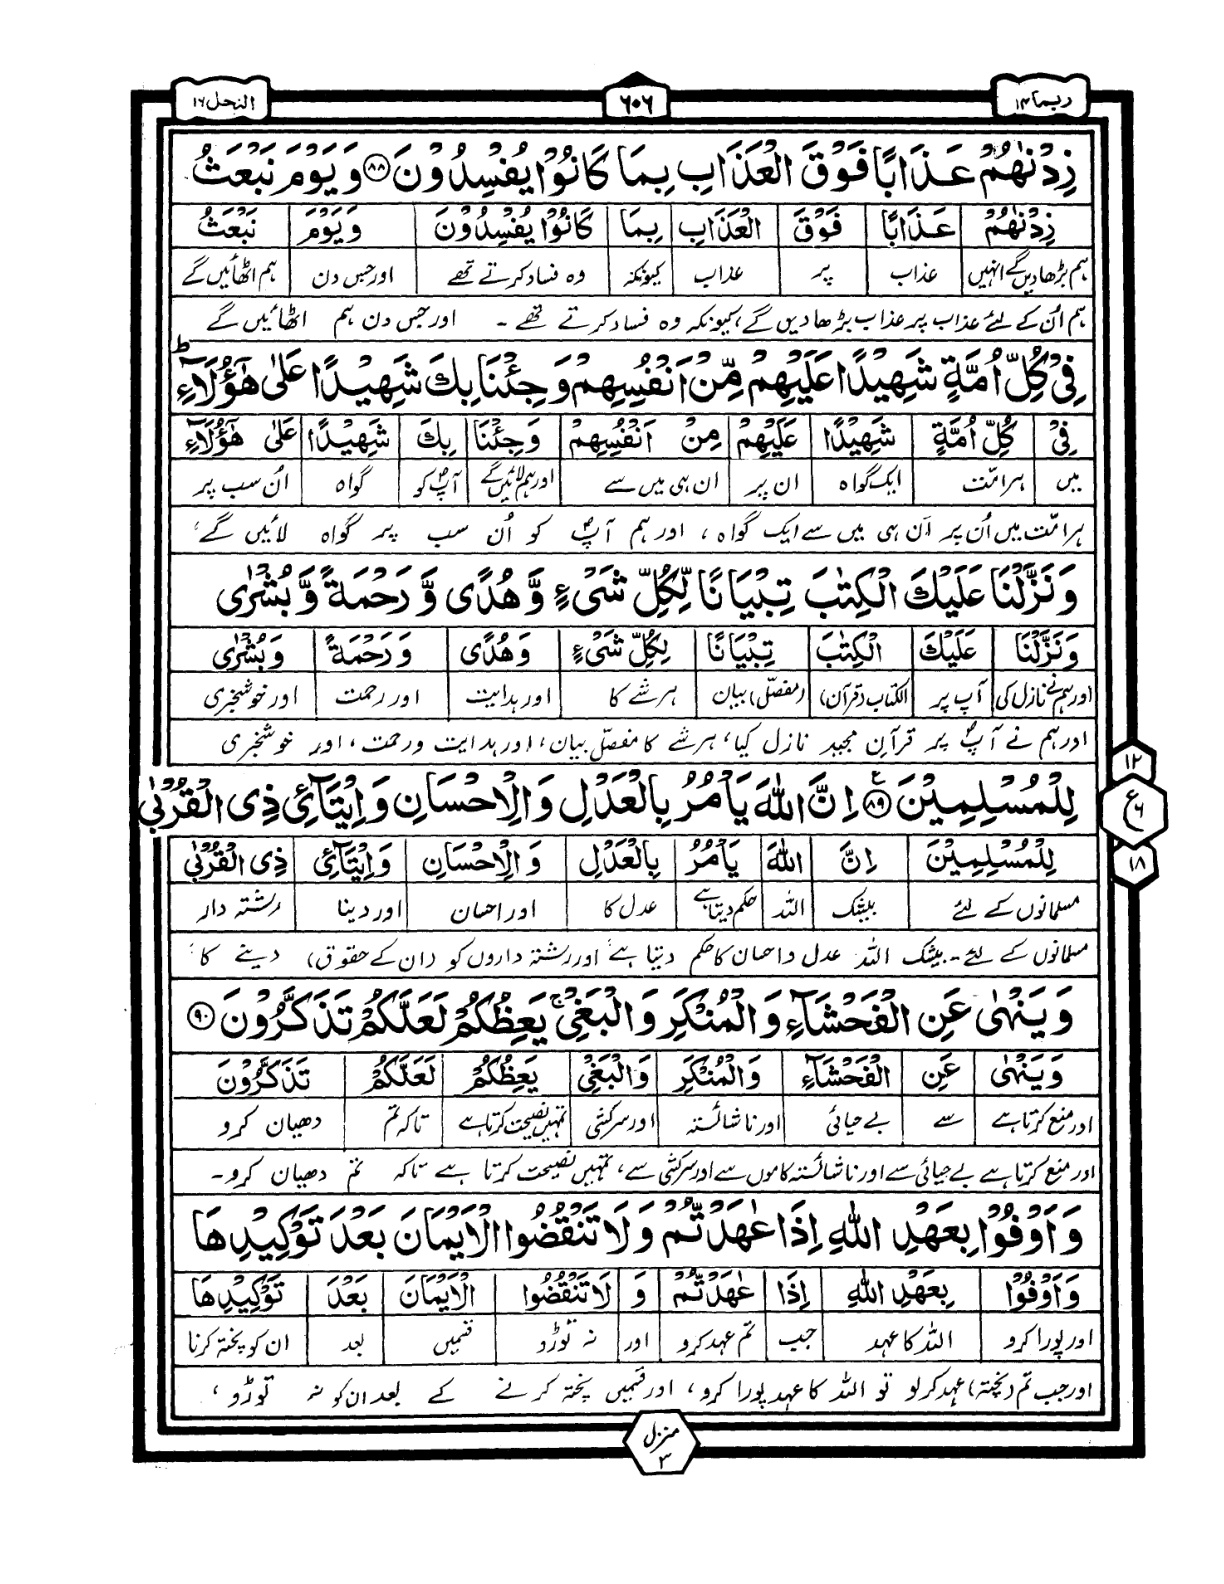 ربما ۱۴
۶۰۶
النحل ۱۶
زِدْنٰهُمْ عَذَابًا فَوْقَ الْعَذَابِ بِمَا كَانُوْا يُفْسِدُوْنَ ﴿۸۸﴾ وَيَوْمَ نَبْعَثُ
زِدْنٰهُمْ عَذَابًا فَوْقَ الْعَذَابِ بِمَا كَانُوْا يُفْسِدُوْنَ وَيَوْمَ نَبْعَثُ
ہم بڑھا دیں گے انہیں عذاب پر عذاب کیونکہ وہ فساد کرتے تھے اور جس دن ہم اٹھائیں گے
ہم اُن کے لئے عذاب پر عذاب بڑھا دیں گے، کیونکہ وہ فساد کرتے تھے ۔ اور جس دن ہم اٹھائیں گے
فِيْ كُلِّ اُمَّةٍ شَهِيْدًا عَلَيْهِمْ مِّنْ اَنْفُسِهِمْ وَجِئْنَا بِكَ شَهِيْدًا عَلٰى هٰۤؤُلَآءِ ؕ
فِيْ كُلِّ اُمَّةٍ شَهِيْدًا عَلَيْهِمْ مِنْ اَنْفُسِهِمْ وَجِئْنَا بِكَ شَهِيْدًا عَلٰى هٰۤؤُلَآءِ
میں ہر امّت ایک گواہ ان پر ان ہی میں سے اور ہم لائیں گے آپؐ کو گواہ اُن سب پر
ہر امّت میں اُن پر اُن ہی میں سے ایک گواہ ، اور ہم آپؐ کو اُن سب پر گواہ لائیں گے ،
وَنَزَّلْنَا عَلَيْكَ الْكِتٰبَ تِبْيَانًا لِّكُلِّ شَیْءٍ وَّهُدًى وَّرَحْمَةً وَّبُشْرٰى
وَنَزَّلْنَا عَلَيْكَ الْكِتٰبَ تِبْيَانًا لِكُلِّ شَیْءٍ وَهُدًى وَرَحْمَةً وَبُشْرٰى
اور ہم نے نازل کی آپ پر الکتاب (قرآن) (مفصّل) بیان ہر شے کا اور ہدایت اور رحمت اور خوشخبری
اور ہم نے آپؐ پر قرآنِ مجید نازل کیا، ہر شے کا مفصّل بیان، اور ہدایت ورحمت، اور خوشخبری
لِلْمُسْلِمِيْنَ ﴿۸۹﴾ ع اِنَّ اللّٰهَ يَاْمُرُ بِالْعَدْلِ وَالْاِحْسَانِ وَاِيْتَآئِ ذِی الْقُرْبٰى
لِلْمُسْلِمِيْنَ اِنَّ اللّٰهَ يَاْمُرُ بِالْعَدْلِ وَالْاِحْسَانِ وَاِيْتَآئِ ذِی الْقُرْبٰى
مسلمانوں کے لئے بیشک اللہ حکم دیتا ہے عدل کا اور احسان اور دینا رشتہ دار
مسلمانوں کے لئے ۔ بیشک اللہ عدل واحسان کا حکم دیتا ہے اور رشتہ داروں کو (ان کے حقوق) دینے کا ،
۱۲
ع
۶
۱۸
وَيَنْهٰى عَنِ الْفَحْشَآءِ وَالْمُنْكَرِ وَالْبَغْيِ ۚ يَعِظُكُمْ لَعَلَّكُمْ تَذَكَّرُوْنَ ﴿۹۰﴾
وَيَنْهٰى عَنِ الْفَحْشَآءِ وَالْمُنْكَرِ وَالْبَغْيِ يَعِظُكُمْ لَعَلَّكُمْ تَذَكَّرُوْنَ
اور منع کرتا ہے سے بے حیائی اور ناشائستہ اور سرکشی تمہیں نصیحت کرتا ہے تاکہ تم دھیان کرو
اور منع کرتا ہے بے حیائی سے اور ناشائستہ کاموں سے اور سرکشی سے، تمہیں نصیحت کرتا ہے تاکہ تم دھیان کرو ۔
وَاَوْفُوْا بِعَهْدِ اللّٰهِ اِذَا عٰهَدْتُّمْ وَلَا تَنْقُضُوا الْاَيْمَانَ بَعْدَ تَوْكِيْدِهَا
وَاَوْفُوْا بِعَهْدِ اللّٰهِ اِذَا عٰهَدْتُّمْ وَ لَا تَنْقُضُوا الْاَيْمَانَ بَعْدَ تَوْكِيْدِهَا
اور پورا کرو اللہ کا عہد جب تم عہد کرو اور نہ توڑو قسمیں بعد ان کو پختہ کرنا
اور جب تم (پختہ) عہد کر لو تو اللہ کا عہد پورا کرو ، اور قسمیں پختہ کرنے کے بعد ان کو نہ توڑو ،
منزل
۳